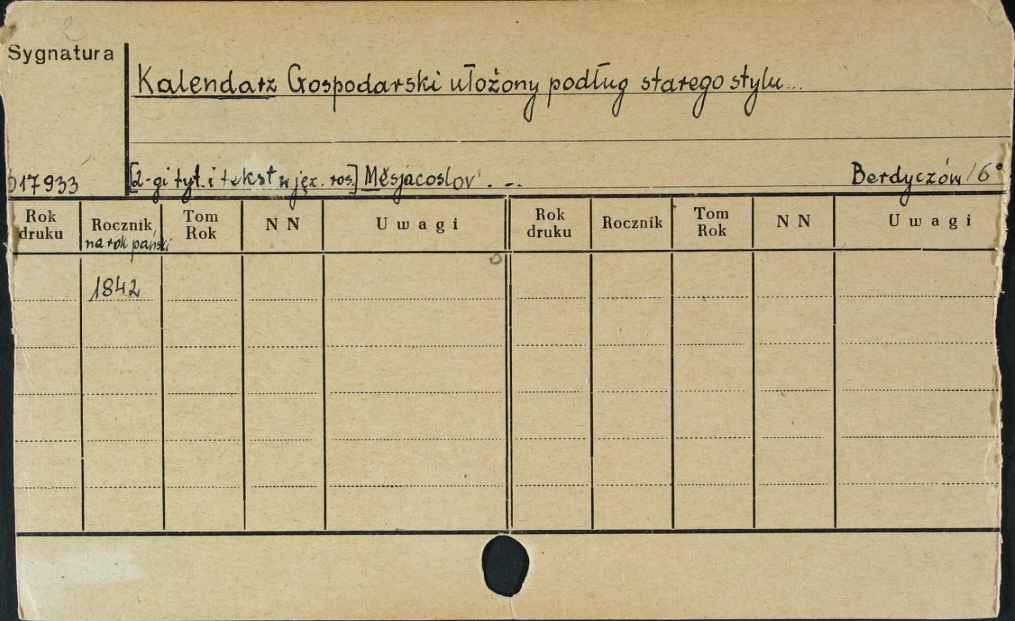 Sygnatura
Kalendarz Gospodarski ułożony podług starego stylu...
017933 [2-gi tyt. i tekst w jęz. ros.] Mĕsjacoslov' . . . Berdyczów 16°
Rok druku Rocznik na rok pański Tom Rok N N Uwagi Rok druku Rocznik Tom Rok N N Uwagi
1842